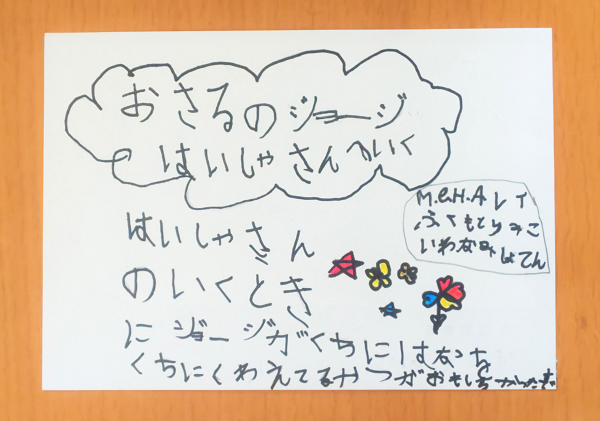 おさるのジョージ
はいしゃさんへいく
M.&H.Aレイ
ふくもとゆみこ
いわなみしょてん
はいしゃさん
のいくとき
にジョージがくちに
くちにくわえてるやつがおもしろかった